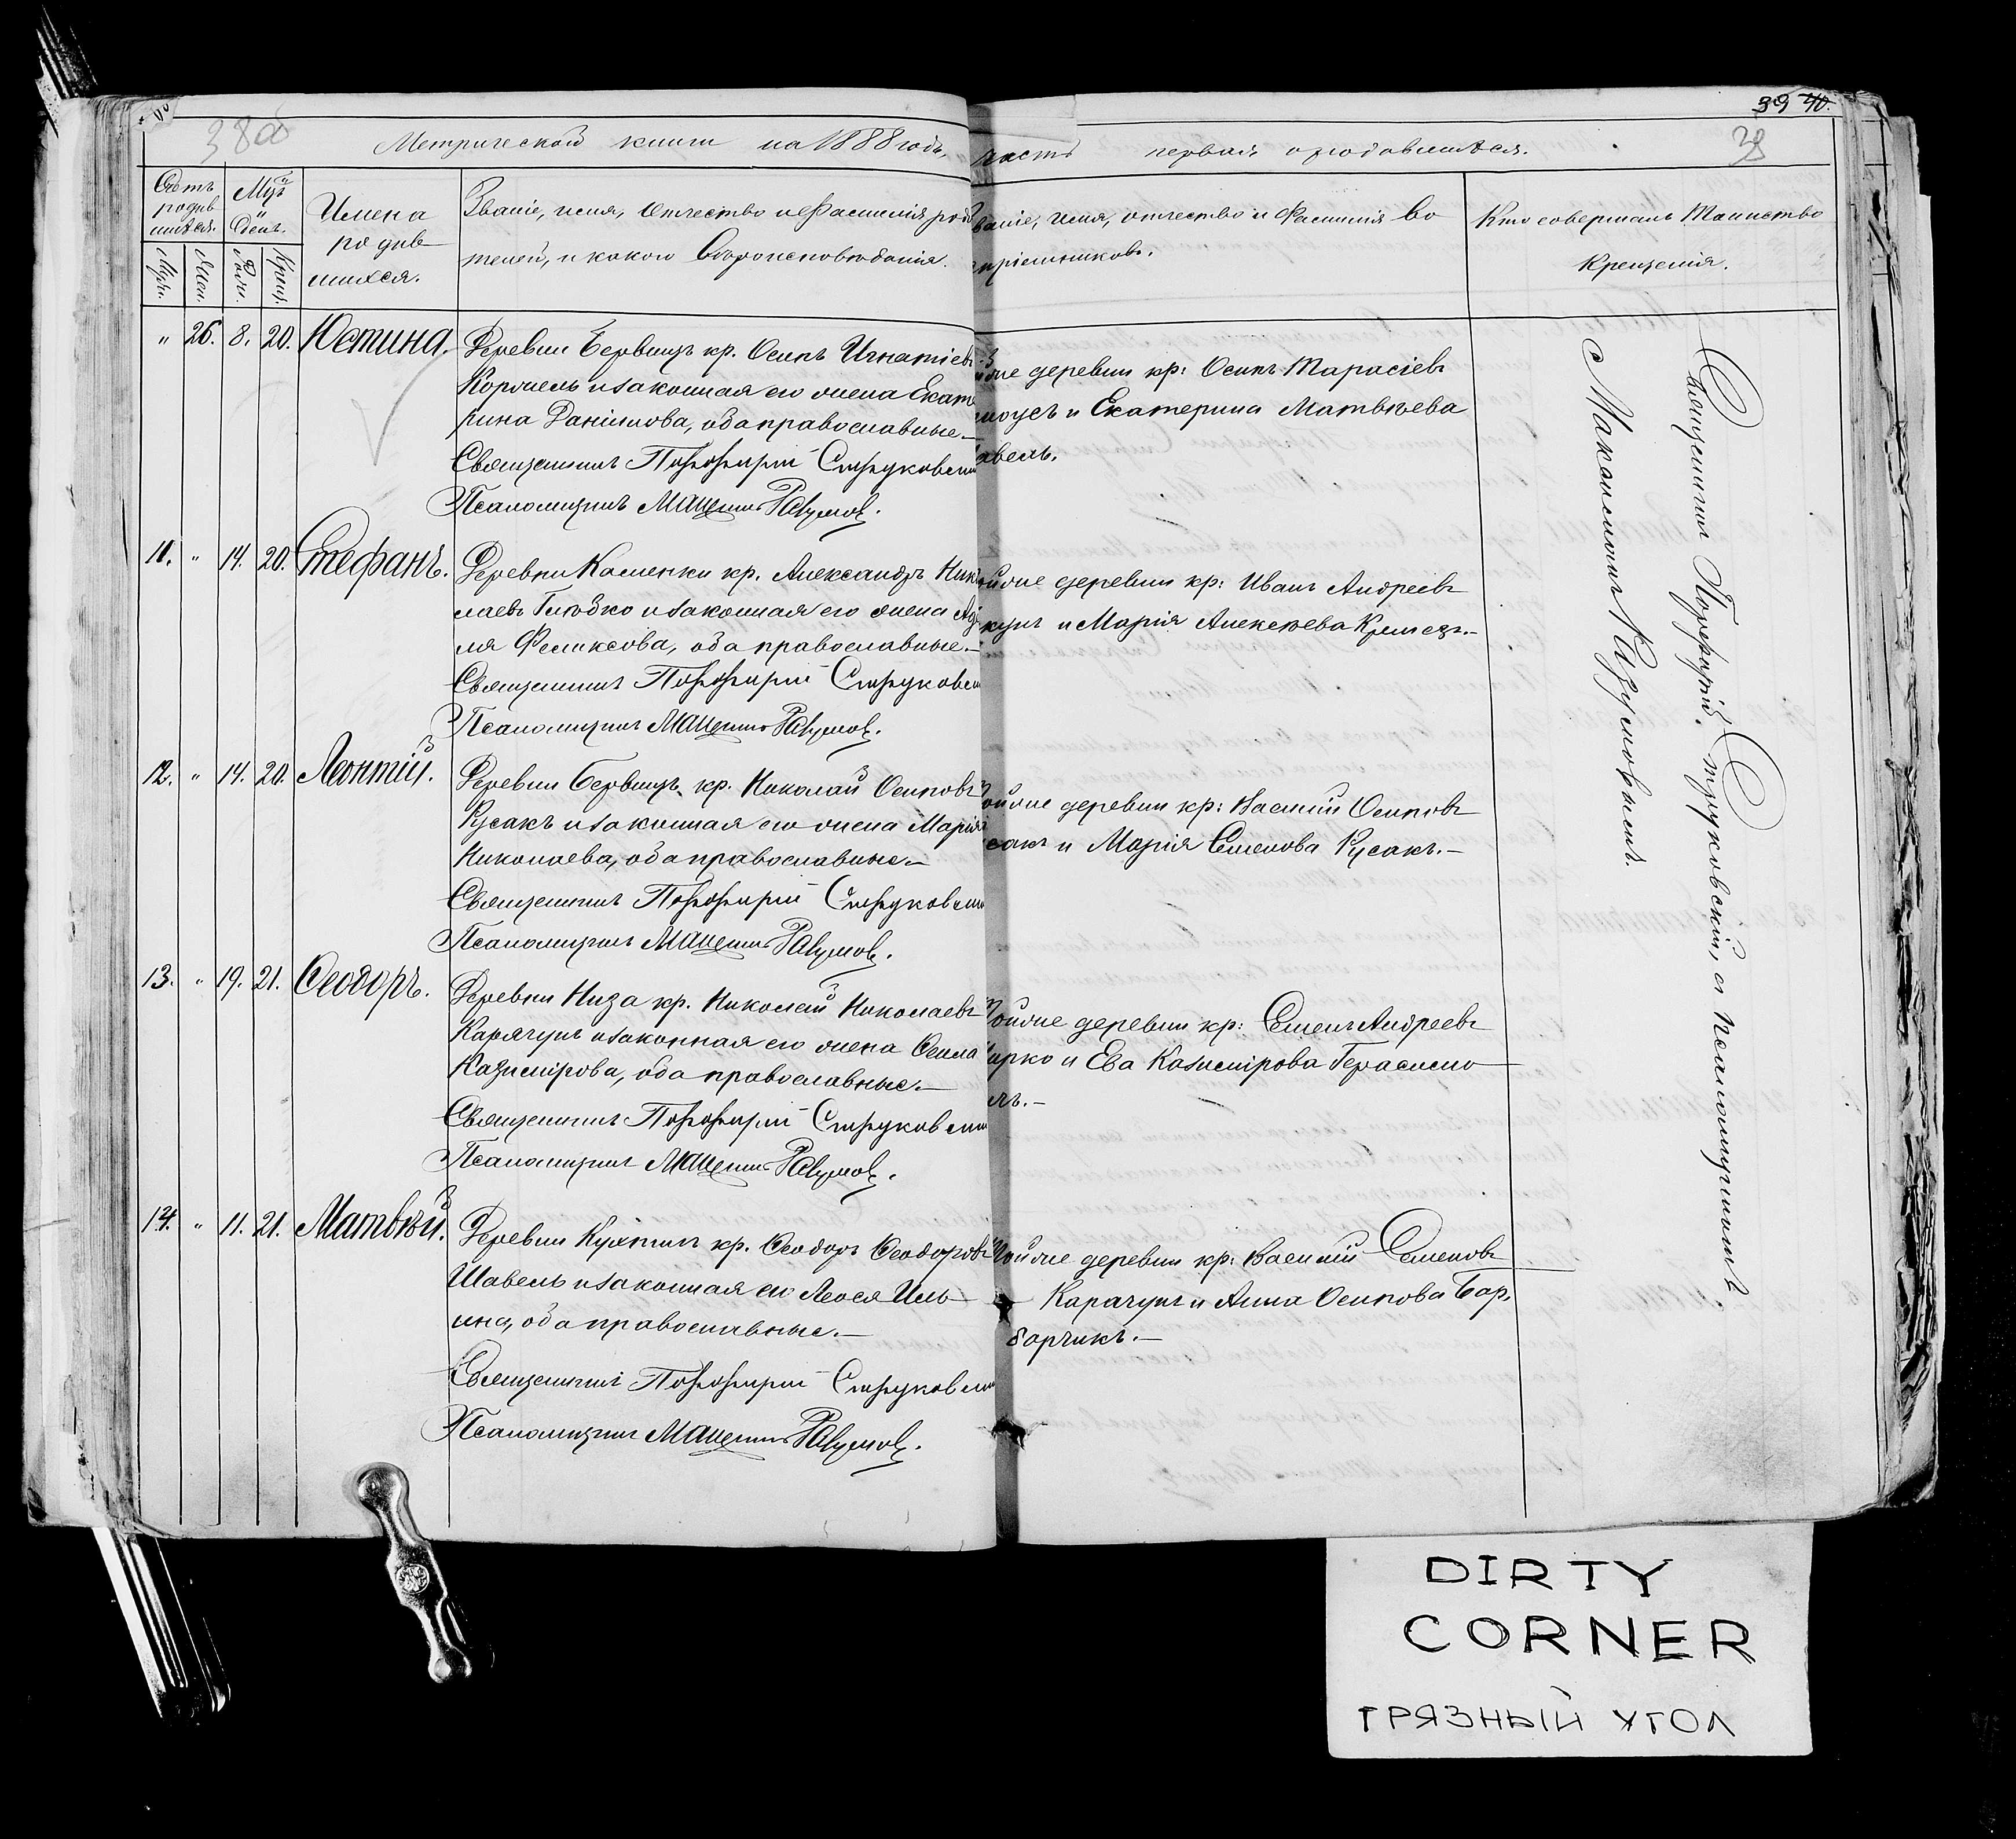 39 40.
38 об
38
Метрической книги на 1888 годъ,
часть первая о родившихся.
Счетъ родив шихся.
Мцъ и день.
Имена
родив
шихся.
Званіе, имя, отчество и фамилія роди
телей, и какого вѣроисповѣданія.
Званіе, имя, отчество и фамилія во
спріемниковъ.
Кто совершалъ Таинство
Крещенія.
Муж.
Жен.
Рожд.
Крещ.
" 26. 8. 20. Юстина.
Деревни Бервищъ кр. Осипъ Игнатіевъ
и законная его жена Екате
рина Данилова, оба православные.—
Священникъ Порфирій Струковскій
Псаломщикъ Разумов.
тойже деревни кр: Осипъ Тарасіевъ
и Екатерина Матвѣева
авель.
11. " 14. 20. Стефанъ.
Деревни Каменки кр. Александръ Нико
лаевъ и законная его жена
Феликсова, оба православные.—
Священникъ Порфирій Струковскій
Псаломщикъ Разумов.
тойже деревни кр: Иванъ Андреевъ
кунъ и Марія Алексѣева
12. " 14. 20. Леонтій.
Деревни Бервищъ кр. Николай Осиповъ
Русакъ и законная его жена Марія
Николаева, оба православные.—
Священникъ Порфирій Струковскій
Псаломщикъ Разумов.
тойже деревни кр: Василій Осиповъ
сакъ и Марія Семенова Русакъ.—
13. " 19. 21. Ѳеодоръ.
Деревни Низа кр. Николай Николаевъ
Карачунъ и законная его жена
Казимірова, оба православные.—
Священникъ Порфирій Струковскій
Псаломщикъ Разумов.
тойже деревни кр: Семенъ Андреевъ
ирко и Ева Казимірова Герасимо
14. " 11. 21. Матвѣй.
Деревни Кухтичъ кр. Ѳеодоръ Ѳеодоровъ
Шавель и законная его Леося Иль
ина, оба православные.—
Священникъ Порфирій Струковскій
Псаломщикъ Разумов.
Тойже деревни кр: Василій Семеновъ
Карачунъ и Анна Осипова Бар,
барчикъ.—
Священникъ Порфирій Струковскій, съ псаломщикомъ
Максимомъ Разумовымъ.
DIRTY
CORNER
ГРЯЗНЫЙ УГОЛ